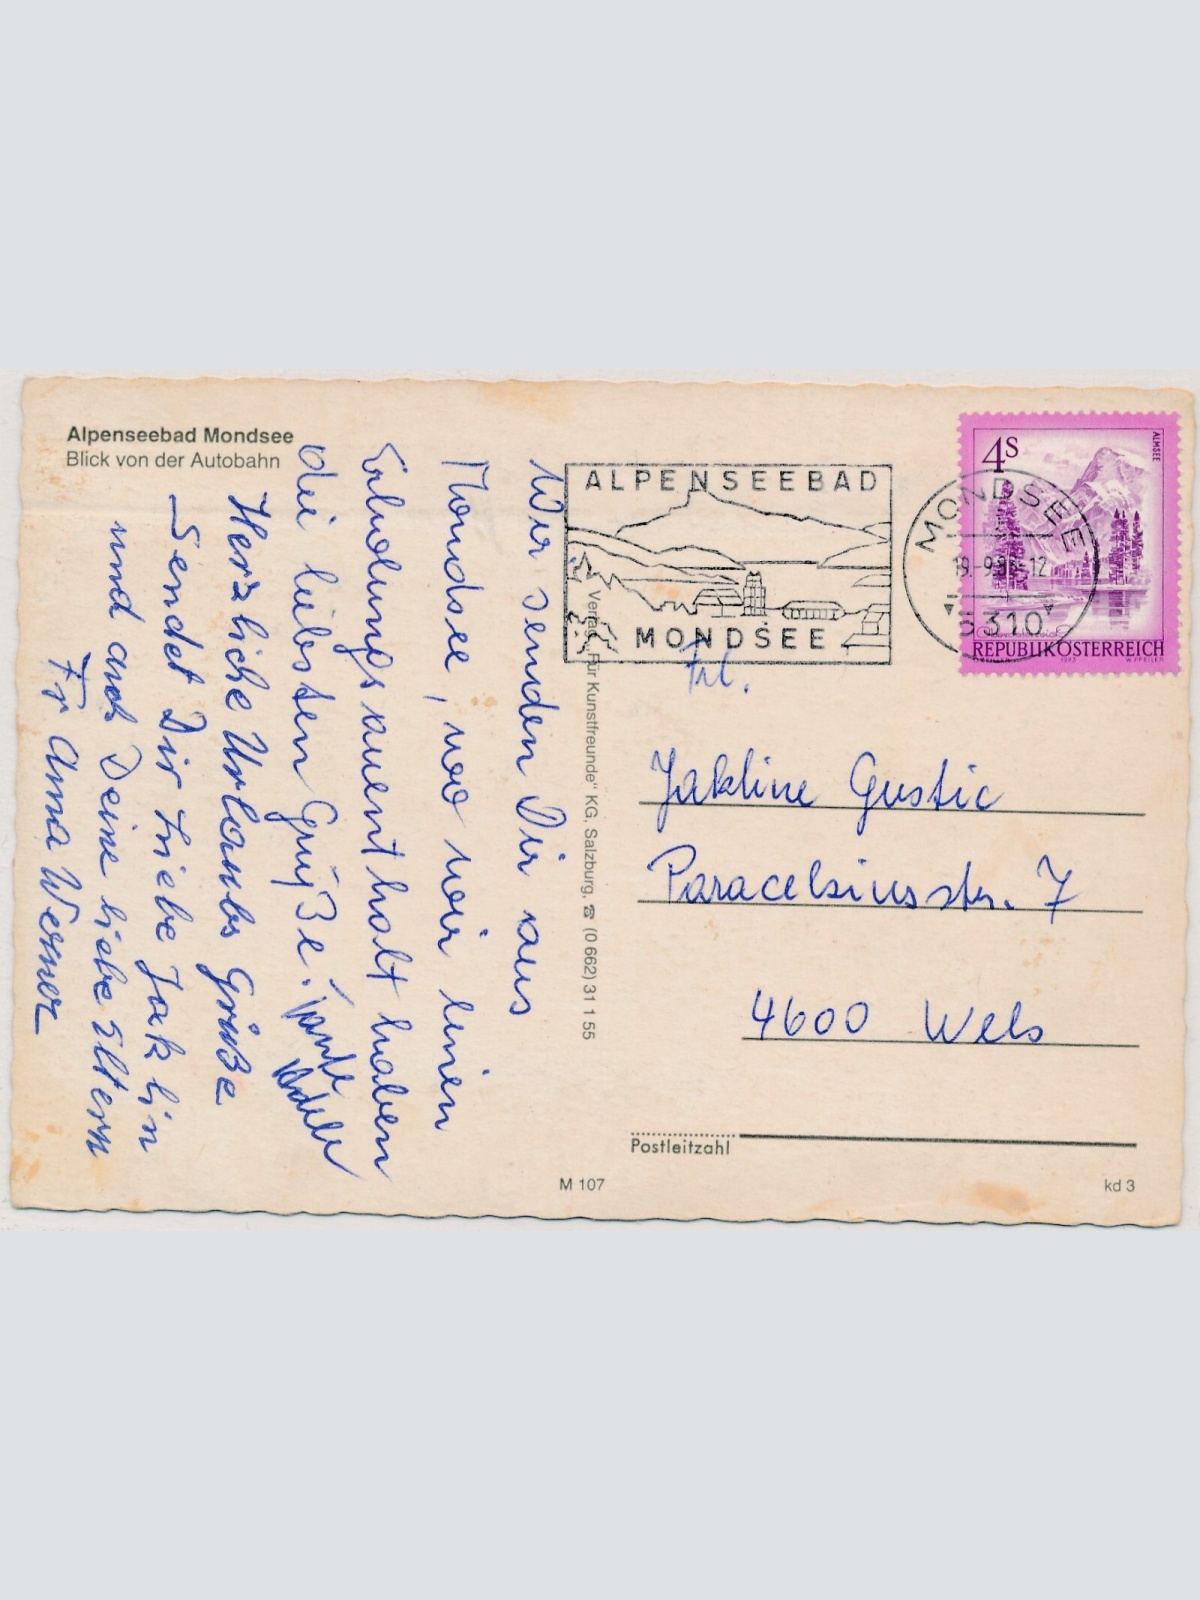 Alpenseebad Mondsee
Blick von der Autobahn
Wir senden Dir aus
Mondsee, wo wir einen
Erholungsauenthalt haben
die liebsten Grüße!
Tante
Herzliche Urlaubs Grüße
Sendet Dir Liebe Jaklin
und auch Deine liebe Eltern
Fr Anna Werner
Verlag „Für Kunstfreunde“ KG, Salzburg, ☎ (0 662) 31 1 55
ALPENSEEBAD
MONDSEE
MONDSEE
5310
4S
ALMSEE
REPUBLIK ÖSTERREICH
1973
W. PFEILER
Frl.
Jakline Gustic
Paracelsiusstr. 7
4600 Wels
Postleitzahl
M 107
kd 3